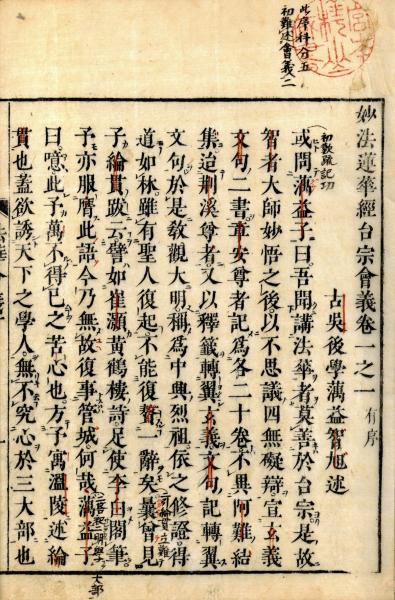 此序科分五
初難述會義二
妙法蓮華經台宗會義卷一之一 有序
古吳後學蕅益智旭述
初敘疏記功
或問蕅益子曰吾聞講法華者莫善於台宗是故
智者大師妙悟之後以不思議四無礙辯宣玄義
文句二書章安尊者記為各二十卷不異阿難結
集迨荊溪尊者又以釋籤轉翼玄義文句記轉翼
文句於是教觀大明稱為中興烈祖依之修證得
道如林雖有聖人復起不能復贊一辭矣曩曾見
子綸貫跋云譬如崔灝黃鶴樓詩足使李白閣筆
予亦服膺此語今乃無故復事管城何哉蕅益子
曰噫此予萬不得已之苦心也方予寓溫陵述綸
貫也蓋欲誘天下之學人無不究心於三大部也